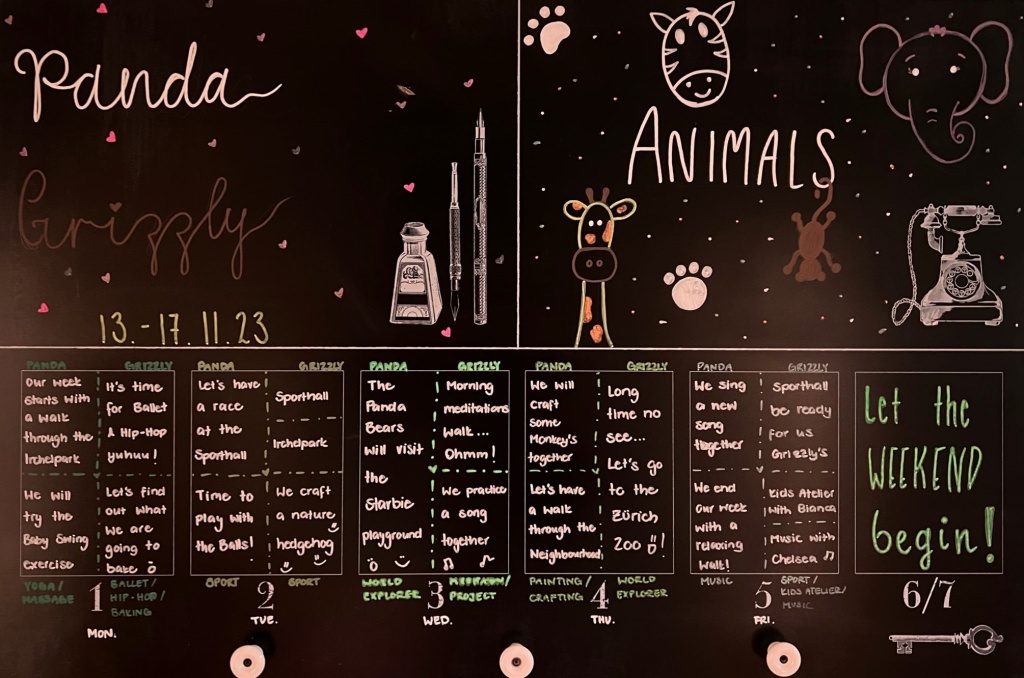 Panda
Grizzly
13.-17.11.23
ANIMALS
PANDA
Our week
starts with
a walk
through the
Irchelpark
We will
try the
Baby Swing
exercise
YOGA/
MASSAGE
GRIZZLY
It's time
for Ballet
& Hip-Hop
yuhuu!
Let's find
out what
we are
going to
bake
BALLET/
HIP-HOP/
BAKING
1
MON.
PANDA
Let's have
a race
at the
Sporthall
Time to
play with
the Balls!
SPORT
GRIZZLY
Sporthall
Irchelpark
We craft
a nature
hedgehog
SPORT
2
TUE.
PANDA
The
Panda
Bears
will visit
the
Starbie
playground
WORLD
EXPLORER
GRIZZLY
Morning
meditations
walk...
Ohmm!
We practice
a song
together
PROJECT
3
WED.
PANDA
We will
craft
some
Monkey's
together
Let's have
a walk
through the
Neighbourhood
PAINTING/
CRAFTING
GRIZZLY
Long
time no
see...
Let's go
to the
Zürich
Zoo!
WORLD
EXPLORER
4
THU.
PANDA
We sing
a new
song
together
We end
our week
with a
relaxing
walk!
MUSIC
GRIZZLY
Sporthall
be ready
for us
Grizzly's
Kids Atelier
with Bianca
Music with
Chelsea
SPORT/
KIDS ATELIER/
MUSIC
5
FRI.
Let the
WEEKEND
begin!
6/7